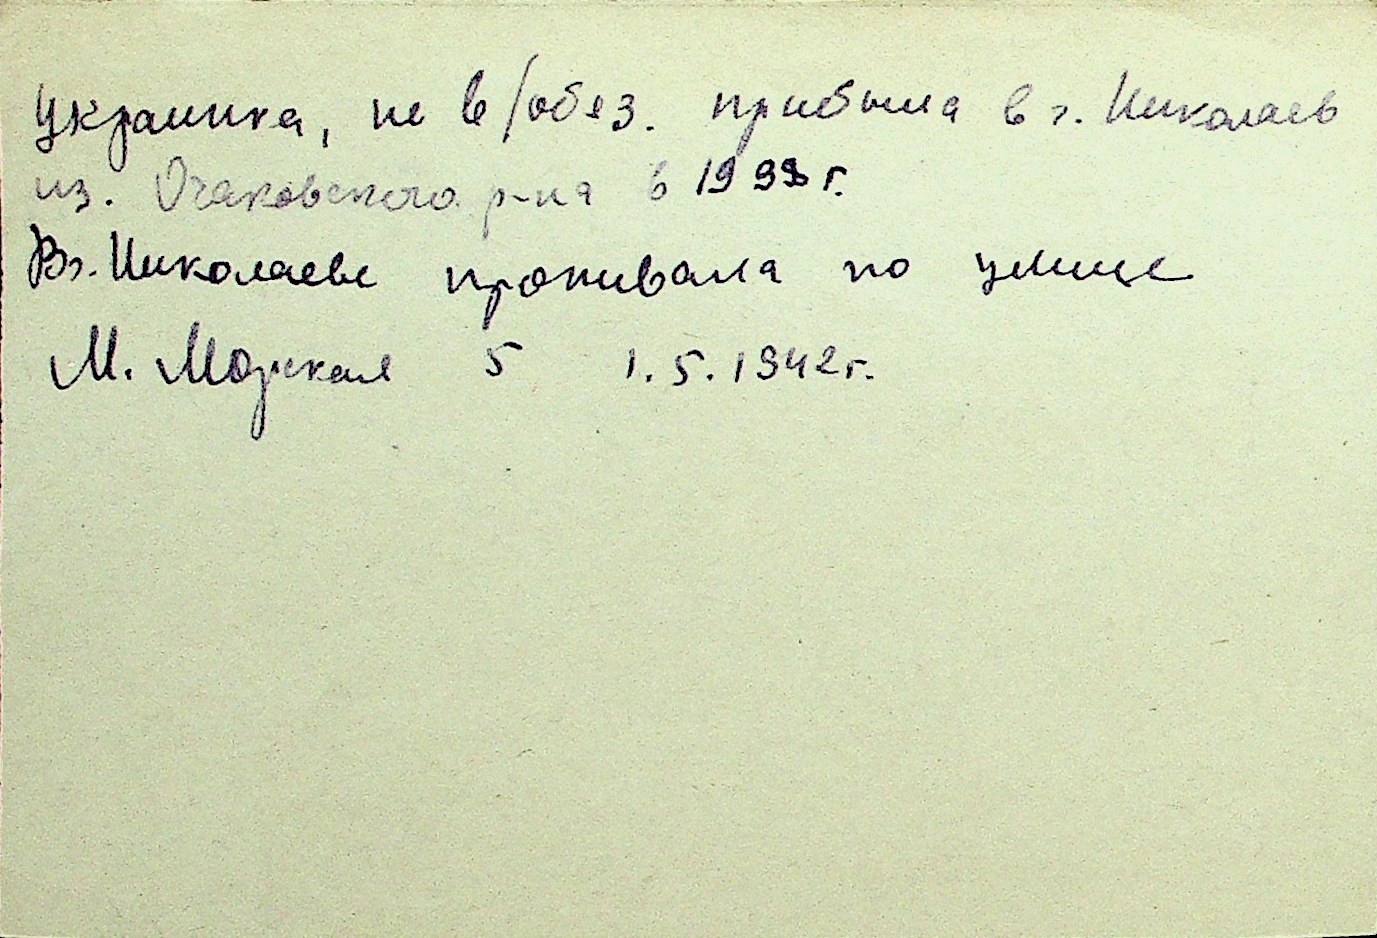 Украинка, не в/обяз. прибыла в г. Николаев
из. Очаковского р-на в 1933 г.
В г. Николаеве проживала по улице
М. Морская 5 1.5.1942 г.